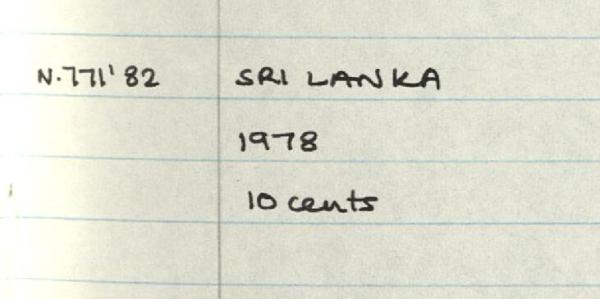 N.771'82 SRI LANKA
1978
10 cents